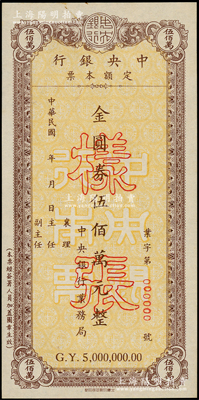 中央銀行
伍佰萬
伍佰萬
中央銀行
定額本票
業字第 000000 號
金圓券伍佰萬元整
中央銀行業務局
襄理
主任
副主任
中華民國 年 月 日
樣張
(本票經簽署人員加蓋圖章生效)
G.Y. 5,000,000.00
伍佰萬
伍佰萬